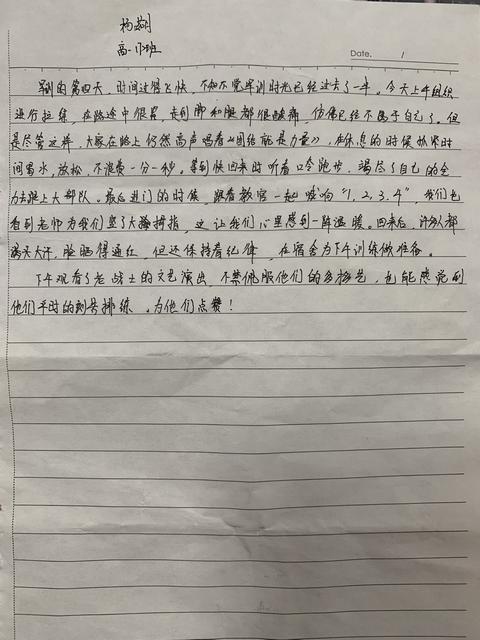 杨
高一17班
Date. /
军训的第四天，时间过得飞快，不知不觉军训时光已经过去了一半，今天上午组织
进行拉练，在路途中很累，走到脚和腿都很酸痛，仿佛已经不属于自己了。但
是尽管这样，大家在路上仍然高声唱着《团结就是力量》，在休息的时候抓紧时
间喝水，放松，不浪费一分一秒。等到快回来时听着口令跑步，竭尽了自己的全
力去跟上大部队。最后进门的时候，跟着教官一起喊响“1,2,3,4”，我们也
看到老师为我们竖了大拇指，这让我们心里感到一阵温暖。回来后，许多人都
满头大汗，脸晒得通红，但还保持着纪律，在宿舍为下午训练做准备。
下午观看了老战士的文艺演出，不禁佩服他们的多才艺，也能感觉到
他们平时的刻苦排练，为他们点赞！